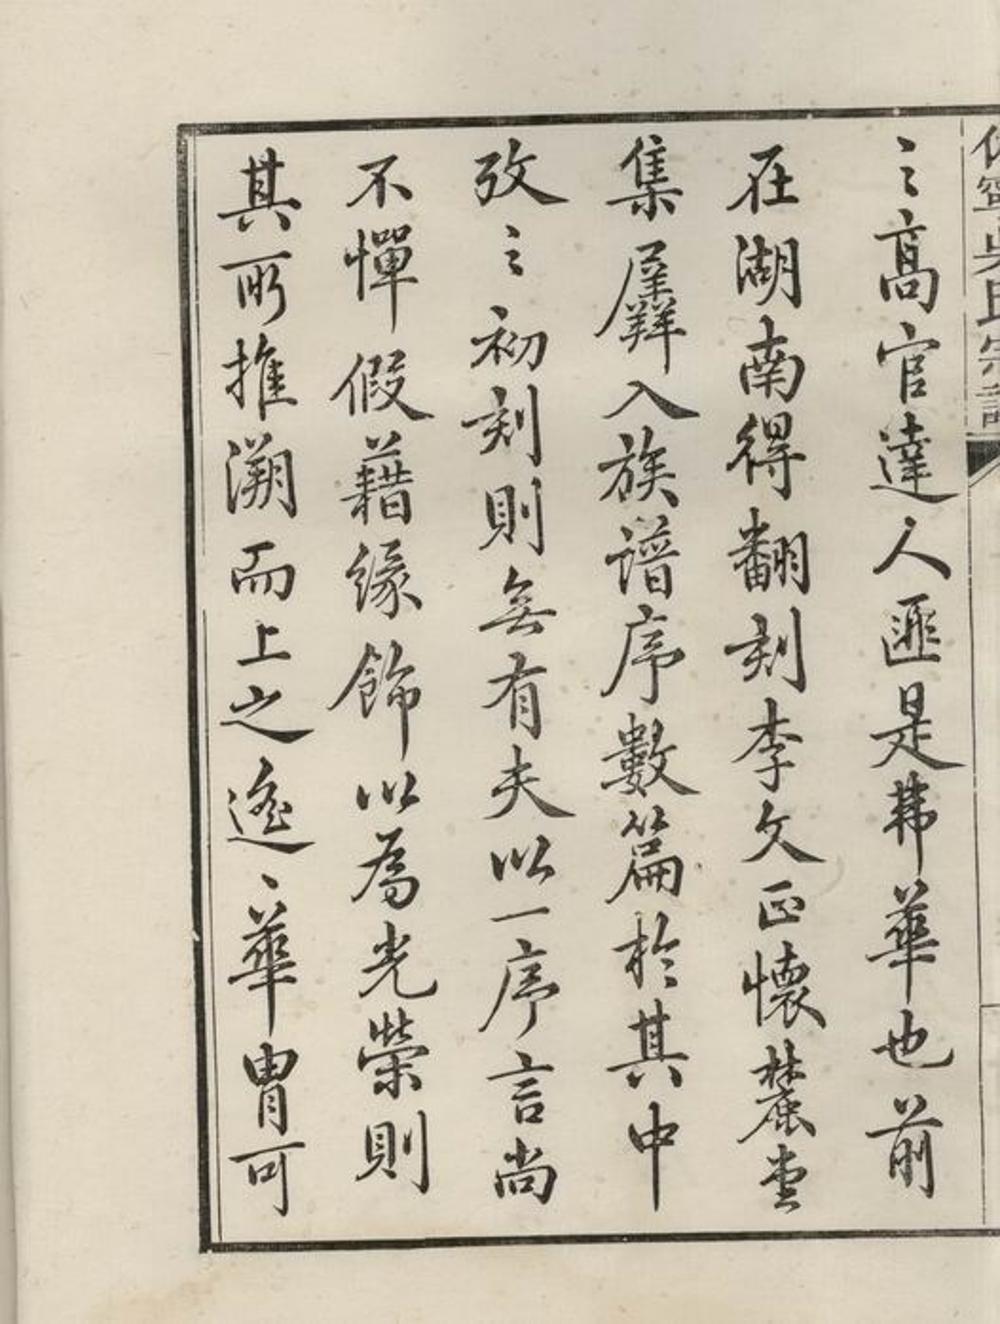 休寧吳氏宗譜
之高官達人匪是弗華也前
在湖南得翻刻李文正懷麓堂
集羼入族譜序數篇於其中
攷之初刻則無有夫以一序言尚
不憚假藉緣飾以為光榮則
其所推溯而上之遙遙華胄可